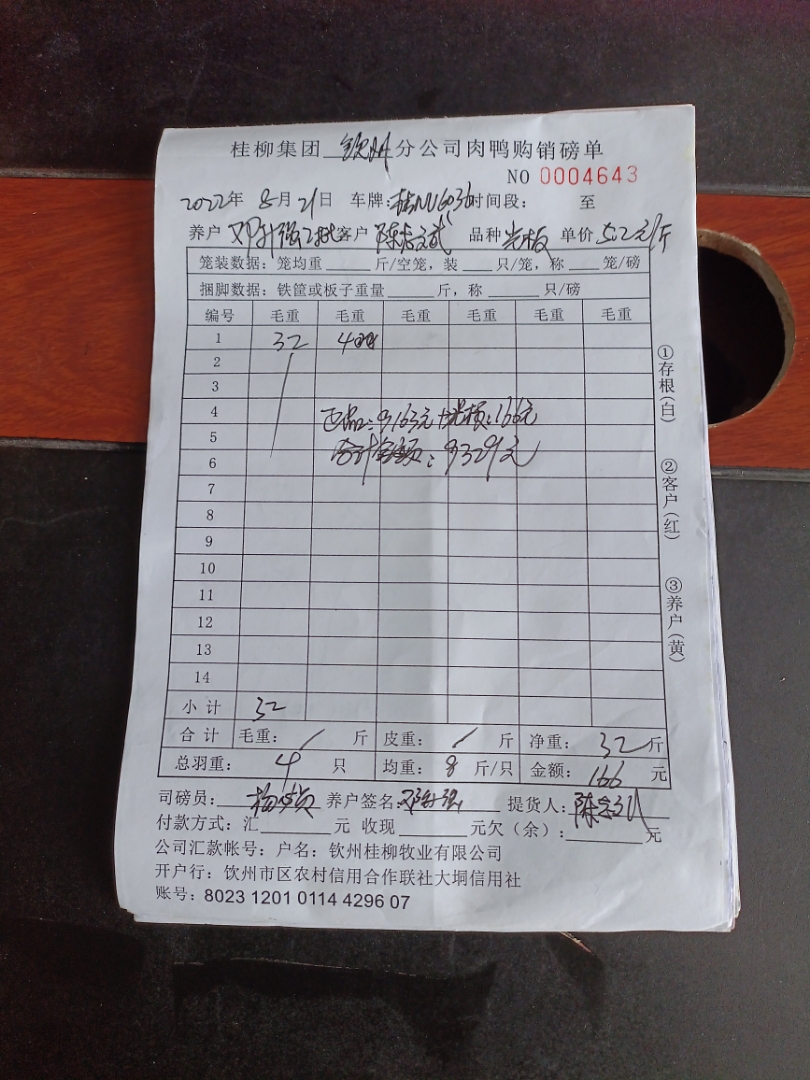 桂柳集团 钦州 分公司肉鸭购销磅单
NO 0004643
2022年 8月 21日 车牌: 时间段: 至
养户 邓升强 客户 品种 光板 单价 5.2元/斤
笼装数据: 笼均重 斤/空笼, 装 只/笼, 称 笼/磅
捆脚数据: 铁筐或板子重量 斤, 称 只/磅
编号 毛重 毛重 毛重 毛重 毛重 毛重
1 32 4
2
3
4 正品: 9163元 光板: 166元
5
6 合计金额: 9329元
7
8
9
10
11
12
13
14
小计 32
合计 毛重: / 斤 皮重: / 斤 净重: 32 斤
总羽重: 4 只 均重: 8 斤/只 金额: 166 元
司磅员: 养户签名: 邓升强 提货人:
付款方式: 汇 元 收现 元欠(余): 元
公司汇款帐号: 户名: 钦州桂柳牧业有限公司
开户行: 钦州市区农村信用合作联社大垌信用社
账号: 8023 1201 0114 4296 07
①存根(白)
②客户(红)
③养户(黄)